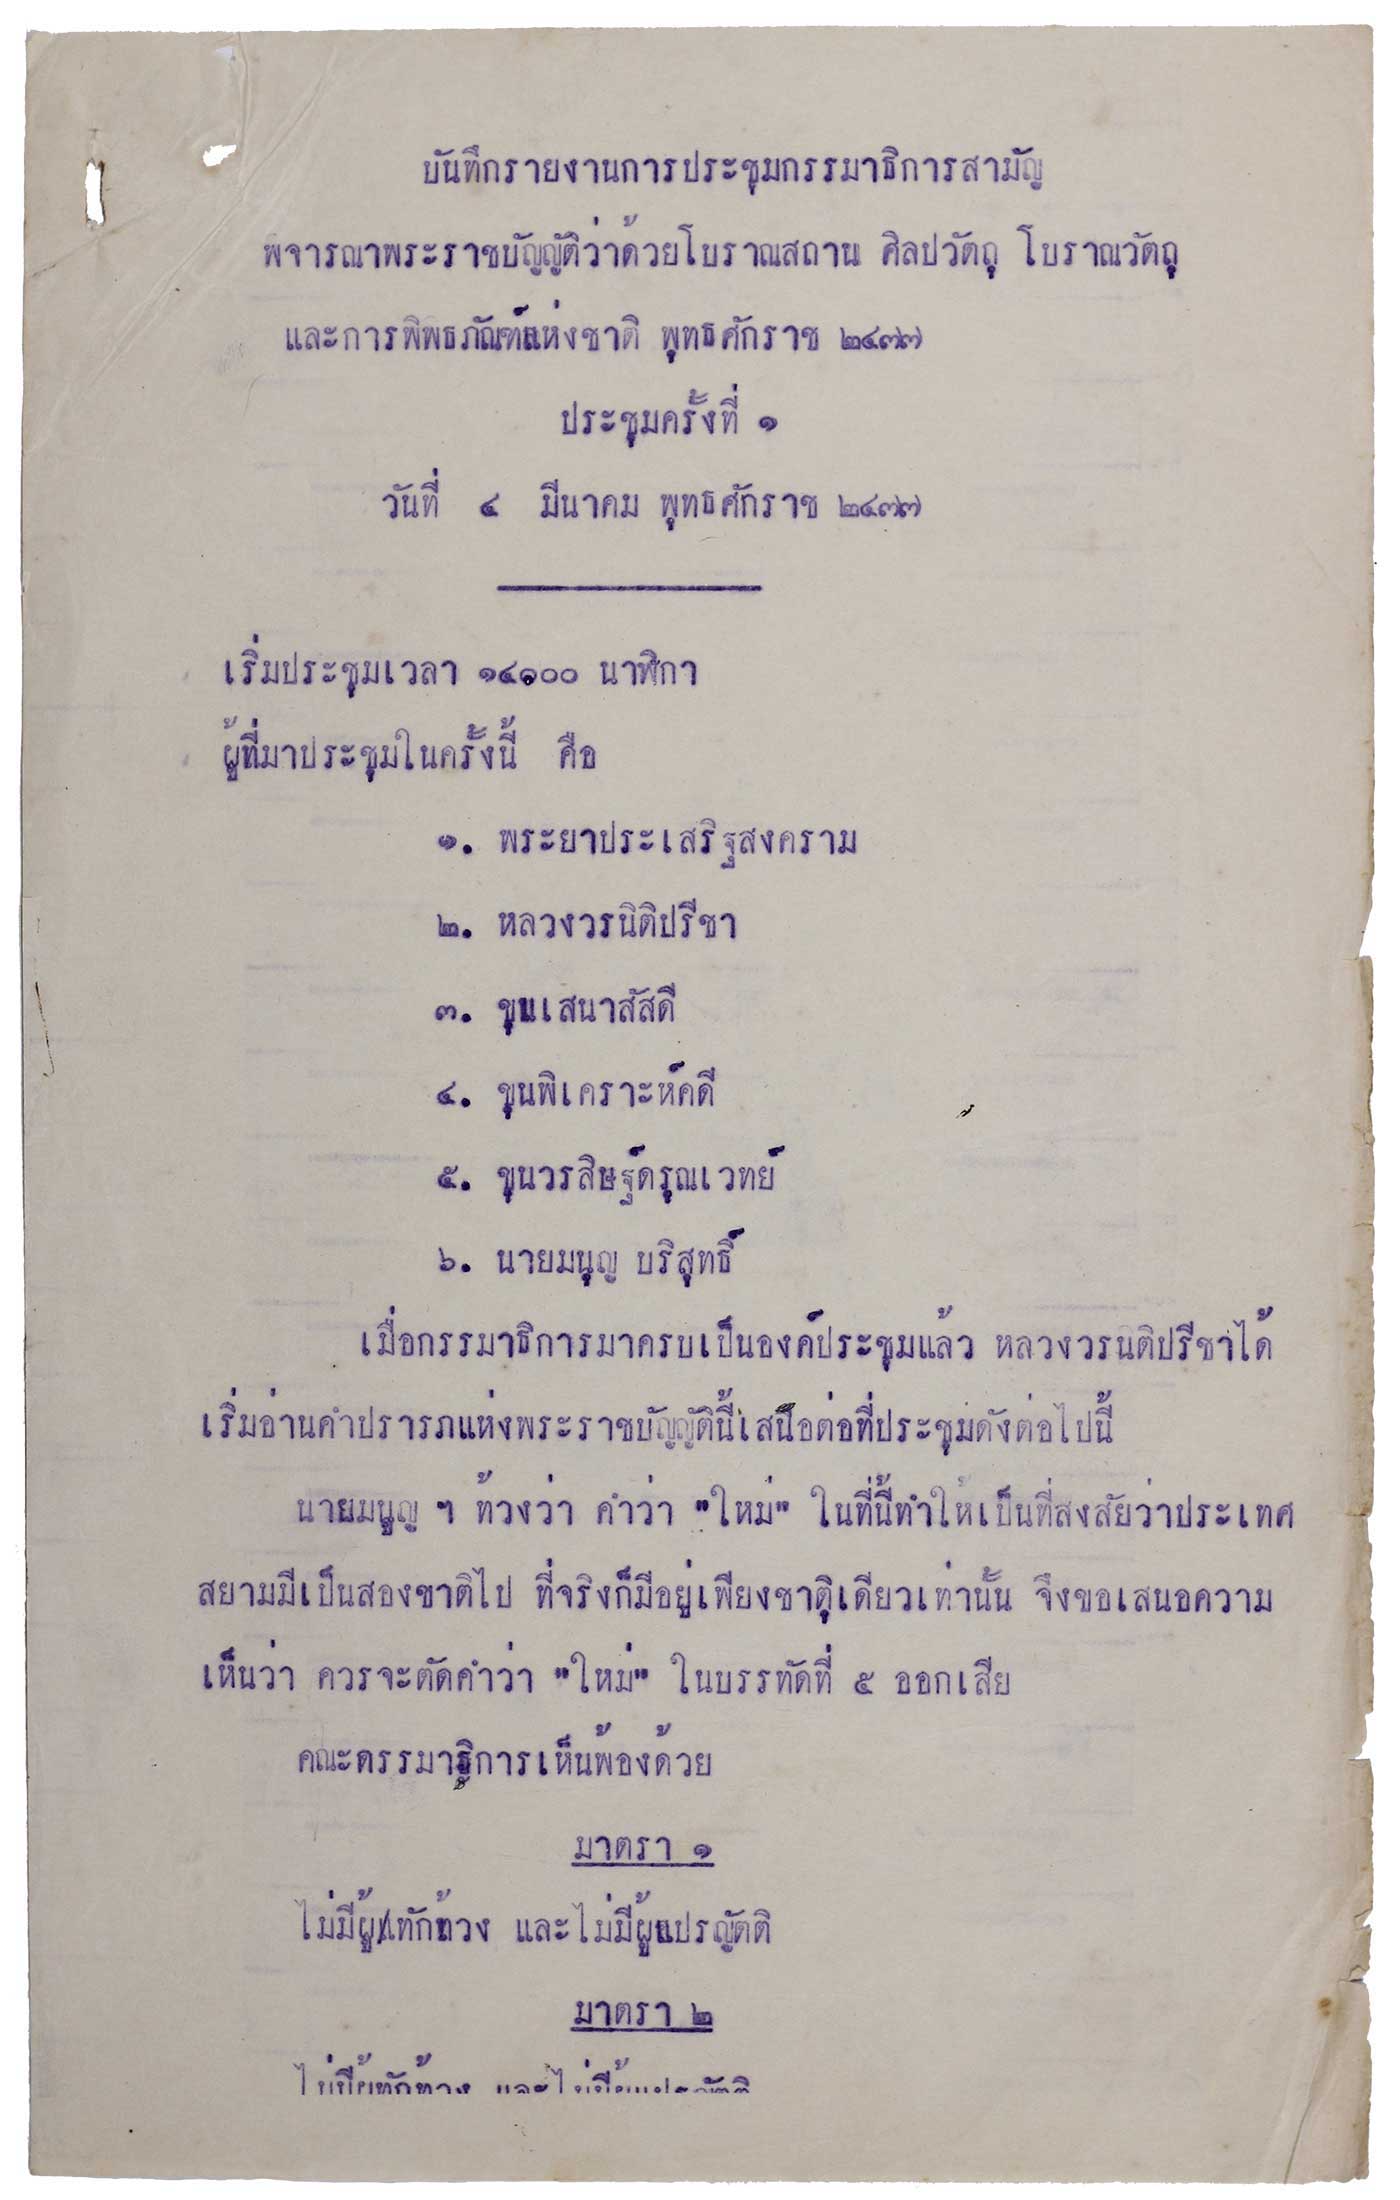 บันทึกรายงานการประชุมกรรมาธิการสามัญ
พิจารณาพระราชบัญญัติว่าด้วยโบราณสถาน ศิลปวัตถุ โบราณวัตถุ
และการพิพิธภัณฑ์แห่งชาติ พุทธศักราช ๒๔๗๗
ประชุมครั้งที่ ๑
วันที่ ๔ มีนาคม พุทธศักราช ๒๔๗๗
เริ่มประชุมเวลา ๑๔.๐๐ นาฬิกา
ผู้ที่มาประชุมในครั้งนี้ คือ
๑. พระยาประเสริฐสงคราม
๒. หลวงวรนิติปรีชา
๓. ขุนเสนาสัสดี
๔. ขุนพิเคราะห์คดี
๕. ขุนวรสิษฐ์ดรุณเวทย์
๖. นายมนูญ บริสุทธิ์
เมื่อกรรมาธิการมาครบเป็นองค์ประชุมแล้ว หลวงวรนิติปรีชาได้
เริ่มอ่านคำปรารภแห่งพระราชบัญญัตินี้เสนอต่อที่ประชุมดังต่อไปนี้
นายมนูญ ฯ ท้วงว่า คำว่า "ใหม่" ในที่นี้ทำให้เป็นที่สงสัยว่าประเทศ
สยามมีเป็นสองชาติไป ที่จริงก็มีอยู่เพียงชาติเดียวเท่านั้น จึงขอเสนอความ
เห็นว่า ควรจะตัดคำว่า "ใหม่" ในบรรทัดที่ ๕ ออกเสีย
คณะกรรมาธิการเห็นพ้องด้วย
มาตรา ๑
ไม่มีผู้ทักท้วง และไม่มีผู้แปรญัตติ
มาตรา ๒
ไม่มีผู้ทักท้วง และไม่มีผู้แปรญัตติ